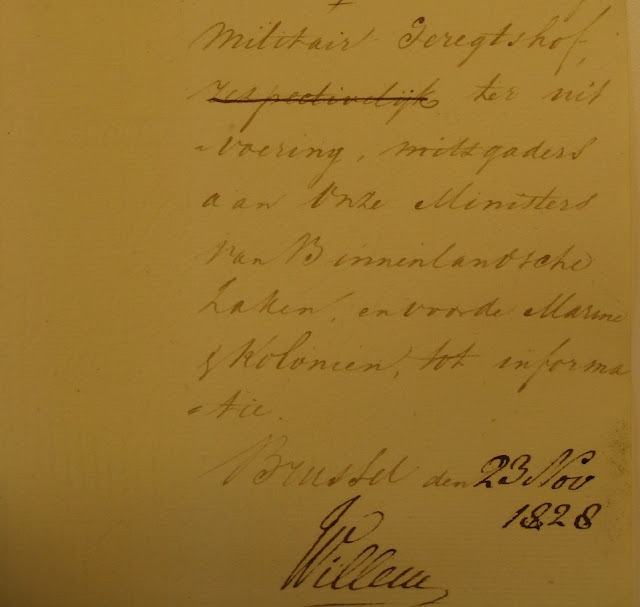 Militair Geregtshof,
respectivelijk ter uit
-voering, mitsgaders
aan Onze Ministers
van Binnenlandsche
Zaken, en voor de Marine
& Kolonien, tot informa
-tie.
Brussel den 23 Nov
1828
Willem